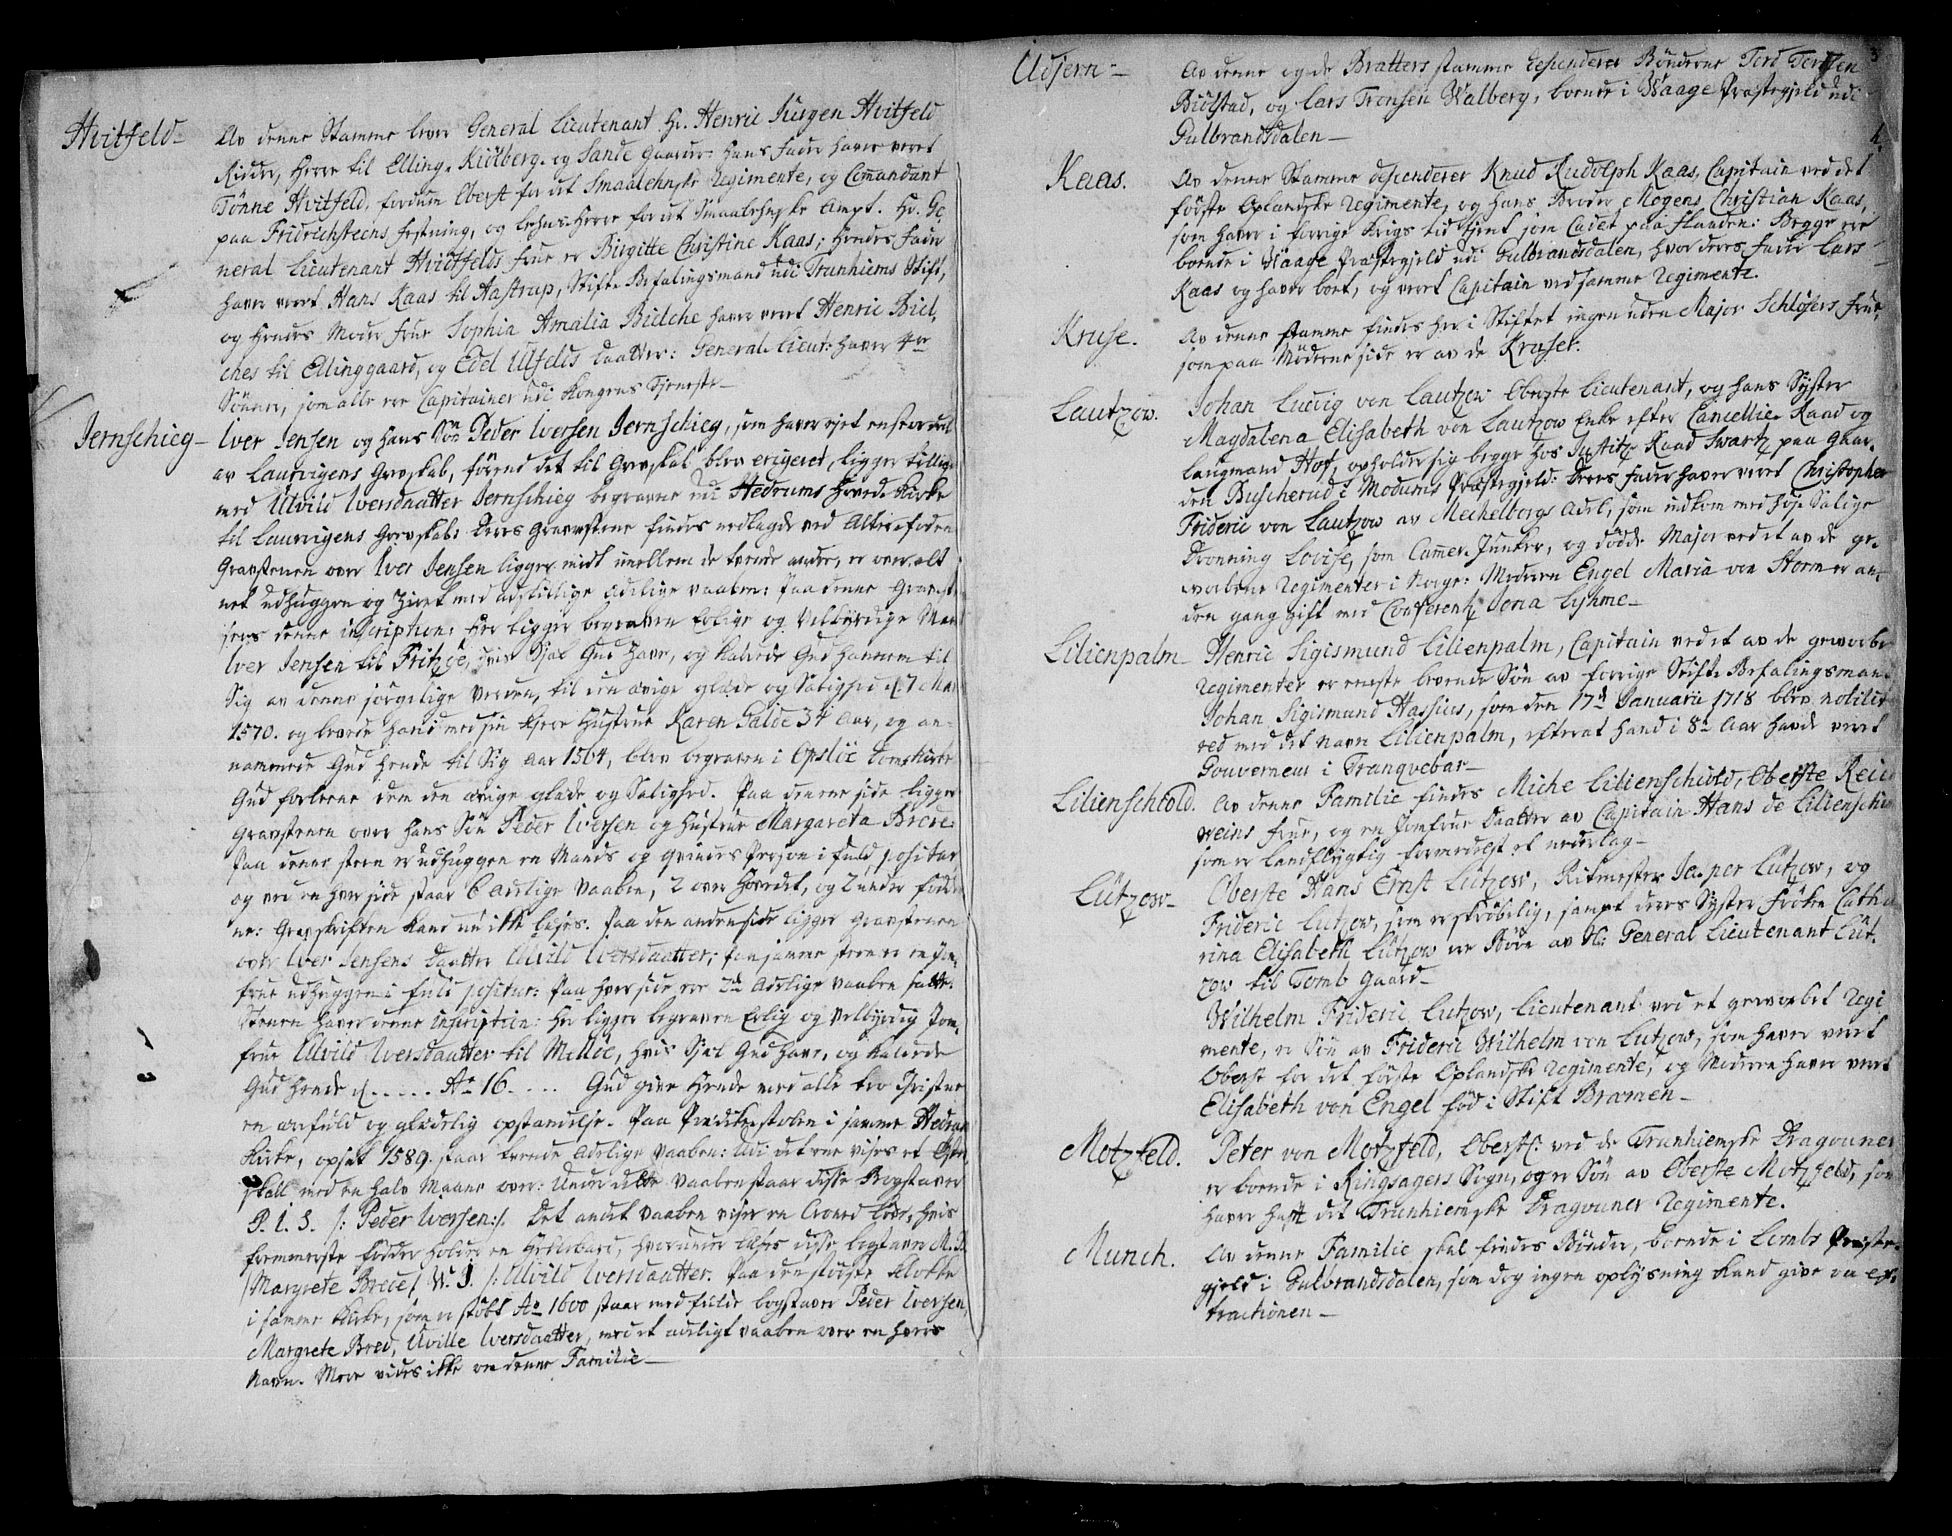 Hvitfeld-
Av denne Stamme lever General Lieutenant Hr. Henric Jürgen Hvitfeld
Ridder, Herre til Elling, Kiölberg, og Sande Gaarder: Hans Fader haver veret
Tönne Hvitfeld, fordum Oberst for det Smaalehnske Regimente, og Commandant
paa Fridrichsteens Festning, og Lehns-Herre for det Smaalehnske Ampt. Hr. Ge,
neral Lieutenant Hvidtfelds Frue er Birgitte Christine Kaas; Hendes Fader
haver veret Hans Kaas til Hastrup, Stifts Befalingsmand udi Trunhiems Stift,
og Hendes Moder Frue Sophia Amalia Bielche haver veret Henric Biel,
ches til Ellinggaard, og Edel Ulfelds Daatter: General-Lieut: haver 4re
Sönner, som alle ere Capitainer udi Kongens Tjeneste-
Jernschieg-
Iver Jensen og hans Sön Peder Iversen Jernschieg, som haver ejet en stor deel
av Laurvigens Grevskab, förend det til Grevskab blev erigeret, ligger tillige
med Ulvild Iversdaatter Jernschieg begravne udi Hedrums Hoved-Kirke
til Laurvigens Grevskab: Deres Gravstene findes nedlagde ved Alter-foden
Gravstenen over Iver Jensen ligger midt imellem de tvende andre, er over alt
net udhuggen og Ziret med adskillige Adelige Vaaben: Paa denne Gravst.
sees denne inscription: Her ligger begraven Erlige og Velbyrdige Man
Iver Jensen til Fritzöe, hvis Sjæl Gud have, og kalede Gud hannem til
Sig av denne sörgelige Verden, til den ævige glæde og Salighed d. 7 Mar
1570. og levede hand med sin kjere Hustrue Karen Galde 34 Aar, og an-
nammede Gud hende til Sig Aar 1564, blev begraven i Opslöe Domkirke
Gud forleene dem den ævige glæde og Salighed. Paa den ene side ligger
Gravstenen over hans Sön Peder Iversen og Hustrue Margareta Brede:
Paa denne steen er udhuggen en Mands og Qvindes Person i fuld positur
og ved en hver side staar 6 adelige Vaaben, 2 over Hovedet, og 2 under födder
ne: Gravskriften kand nu ikke læses. Paa den anden side ligger Gravstenen
over Iver Jensens Daatter Ulvild Iversdaatter; paa samme steen er en Jom,
frue udhuggen i fuld positur: Paa hver side ere 2de Adelige Vaaben satte.
Stenen haver denne inscription: Her ligger begraven Erlig og Velbyrdig Jom,
frue Ulvild Iversdaatter til Mellöe, hvis Sjæl Gud have, og kalede
Gud hende d. . . . . . Ao 16. . . . . Gud give hende med alle tro Christne
en ærefuld og glædelig opstandelse. Paa Prædikestolen i samme Hedrum
Kirke, opsat 1589. staar tvende Adelige Vaaben: Udi det ene vises et
skall med en halv Maane over: Under dette Vaaben staar disse Bogstaver
P. I. S. /: Peder Iversen:/. Det andet Vaaben viser en Croned Löve, hvis
forremste födder holder en Hellebard, hvorunder læses disse bogstaver M. B.
/Margrete Brede/ W. I. /: Ulvild Iversdaatter. Paa den störste klokke
i samme Kirke, som er stöbt Ao 1600 staar med fulde bogstaver Peder Iversen,
Margrete Bred, Uville Iversdaatter, med et adeligt Vaaben over en hvers
Navn. Mere vides ikke om denne Familie-
3
Udjern-
Av denne og de Bratters stamme descenderer Bönderne Tord Tordsen
Biölstad, og Lars Tronsen Walberg, boende i Waage Præstegjeld udi
Gulbrandsdalen-
4.
Kaas.
Av denne Stamme descenderer Knud Rudolph Kaas, Capitain ved det
förste Oplandske Regimente, og hans Broder Mogens Christian Kaas,
som haver i forrige Krigs tid tjent som Cadet paa Flaaden: Begge ere
boende i Waage Præstegjeld udi Gulbrandsdalen, hvor deres Fader Lars
Kaas og haver boet, og veret Capitain ved samme Regimente.
Kruse.
Av denne stamme findes her i Stiftet ingen uden Major Schlösers Frue,
som paa Möderne side er av de Kruser.
Lautzow.
Johan Ludvig von Lautzow Oberste Lieutenant, og hans Syster
Magdalena Elisabeth von Lautzow Enke efter Cancellie-Raad og
Laugmand Hof, opholder sig begge hos Justitz Raad Swartz paa Gaar,
den Buscherud i Modums Præstegjeld: Deres Fader haver veret Christopher
Frideric von Lautzow av Mechelborgs Adel, som indkom med höjs Salige
Dronning Lovise, som Cammer-Junker, og döde Major ved et av de ge-
worbene Regimenter i Norge: Moderen Engel Maria von Storm er an-
den gang gift med Conferentz Jena Lyhme-
Lilienpalm-
Henric Sigismund Lilienpalm, Capitain ved et av de geworbe
Regimenter er eneste levende Sön av forrige Stifts Befalingsman.
Johan Sigismund Hassius, som den 17de Januarii 1718 blev nobilite
red med det navn Lilienpalm, efterat hand i 8te Aar havde veret
Gouverneur i Tranqvebar-
Lilienschiold.
Av denne Familie findes Miche Lilienschiold, Oberste Reich
weins Frue, og en Jomfrue Daatter av Capitain Hans de Lilienschio
som er landflygtig formedelst et nederlag-
Lützow-
Oberste Hans Ernst Lützow, Ritmester Jasper Lützow, og
Frideric Lutzow, som er skröbelig, sampt deres Syster Fröken Catha
rina Elisabeth Lützow ere Börn av Sl: General Lieutenant Lüt,
zow til Tomb Gaard-
Wilhelm Frideric Lutzow, Lieutenant ved et geworbet Regi
mente, er Sön av Frideric Wilhelm von Lutzow, som haver veret
Oberst for det förste Oplandske Regimente, og Moderen haver veret
Elisabeth von Engel föd i Stift Bræmen-
Motzfeld.
Peter von Motzfeld, Oberstl: ved de Trunhiemske Dragouner
er boende i Ringsagers Sogn, og er Sön av Oberste Motzfeld, som
haver haft det Trunhiemske Dragouner Regimente.
Munch.
Av denne Familie skal findes Bönder, boende i Lombs Præste-
gjeld i Gulbrandsdalen, som dog ingen oplysning kand give om ex-
tractionen-